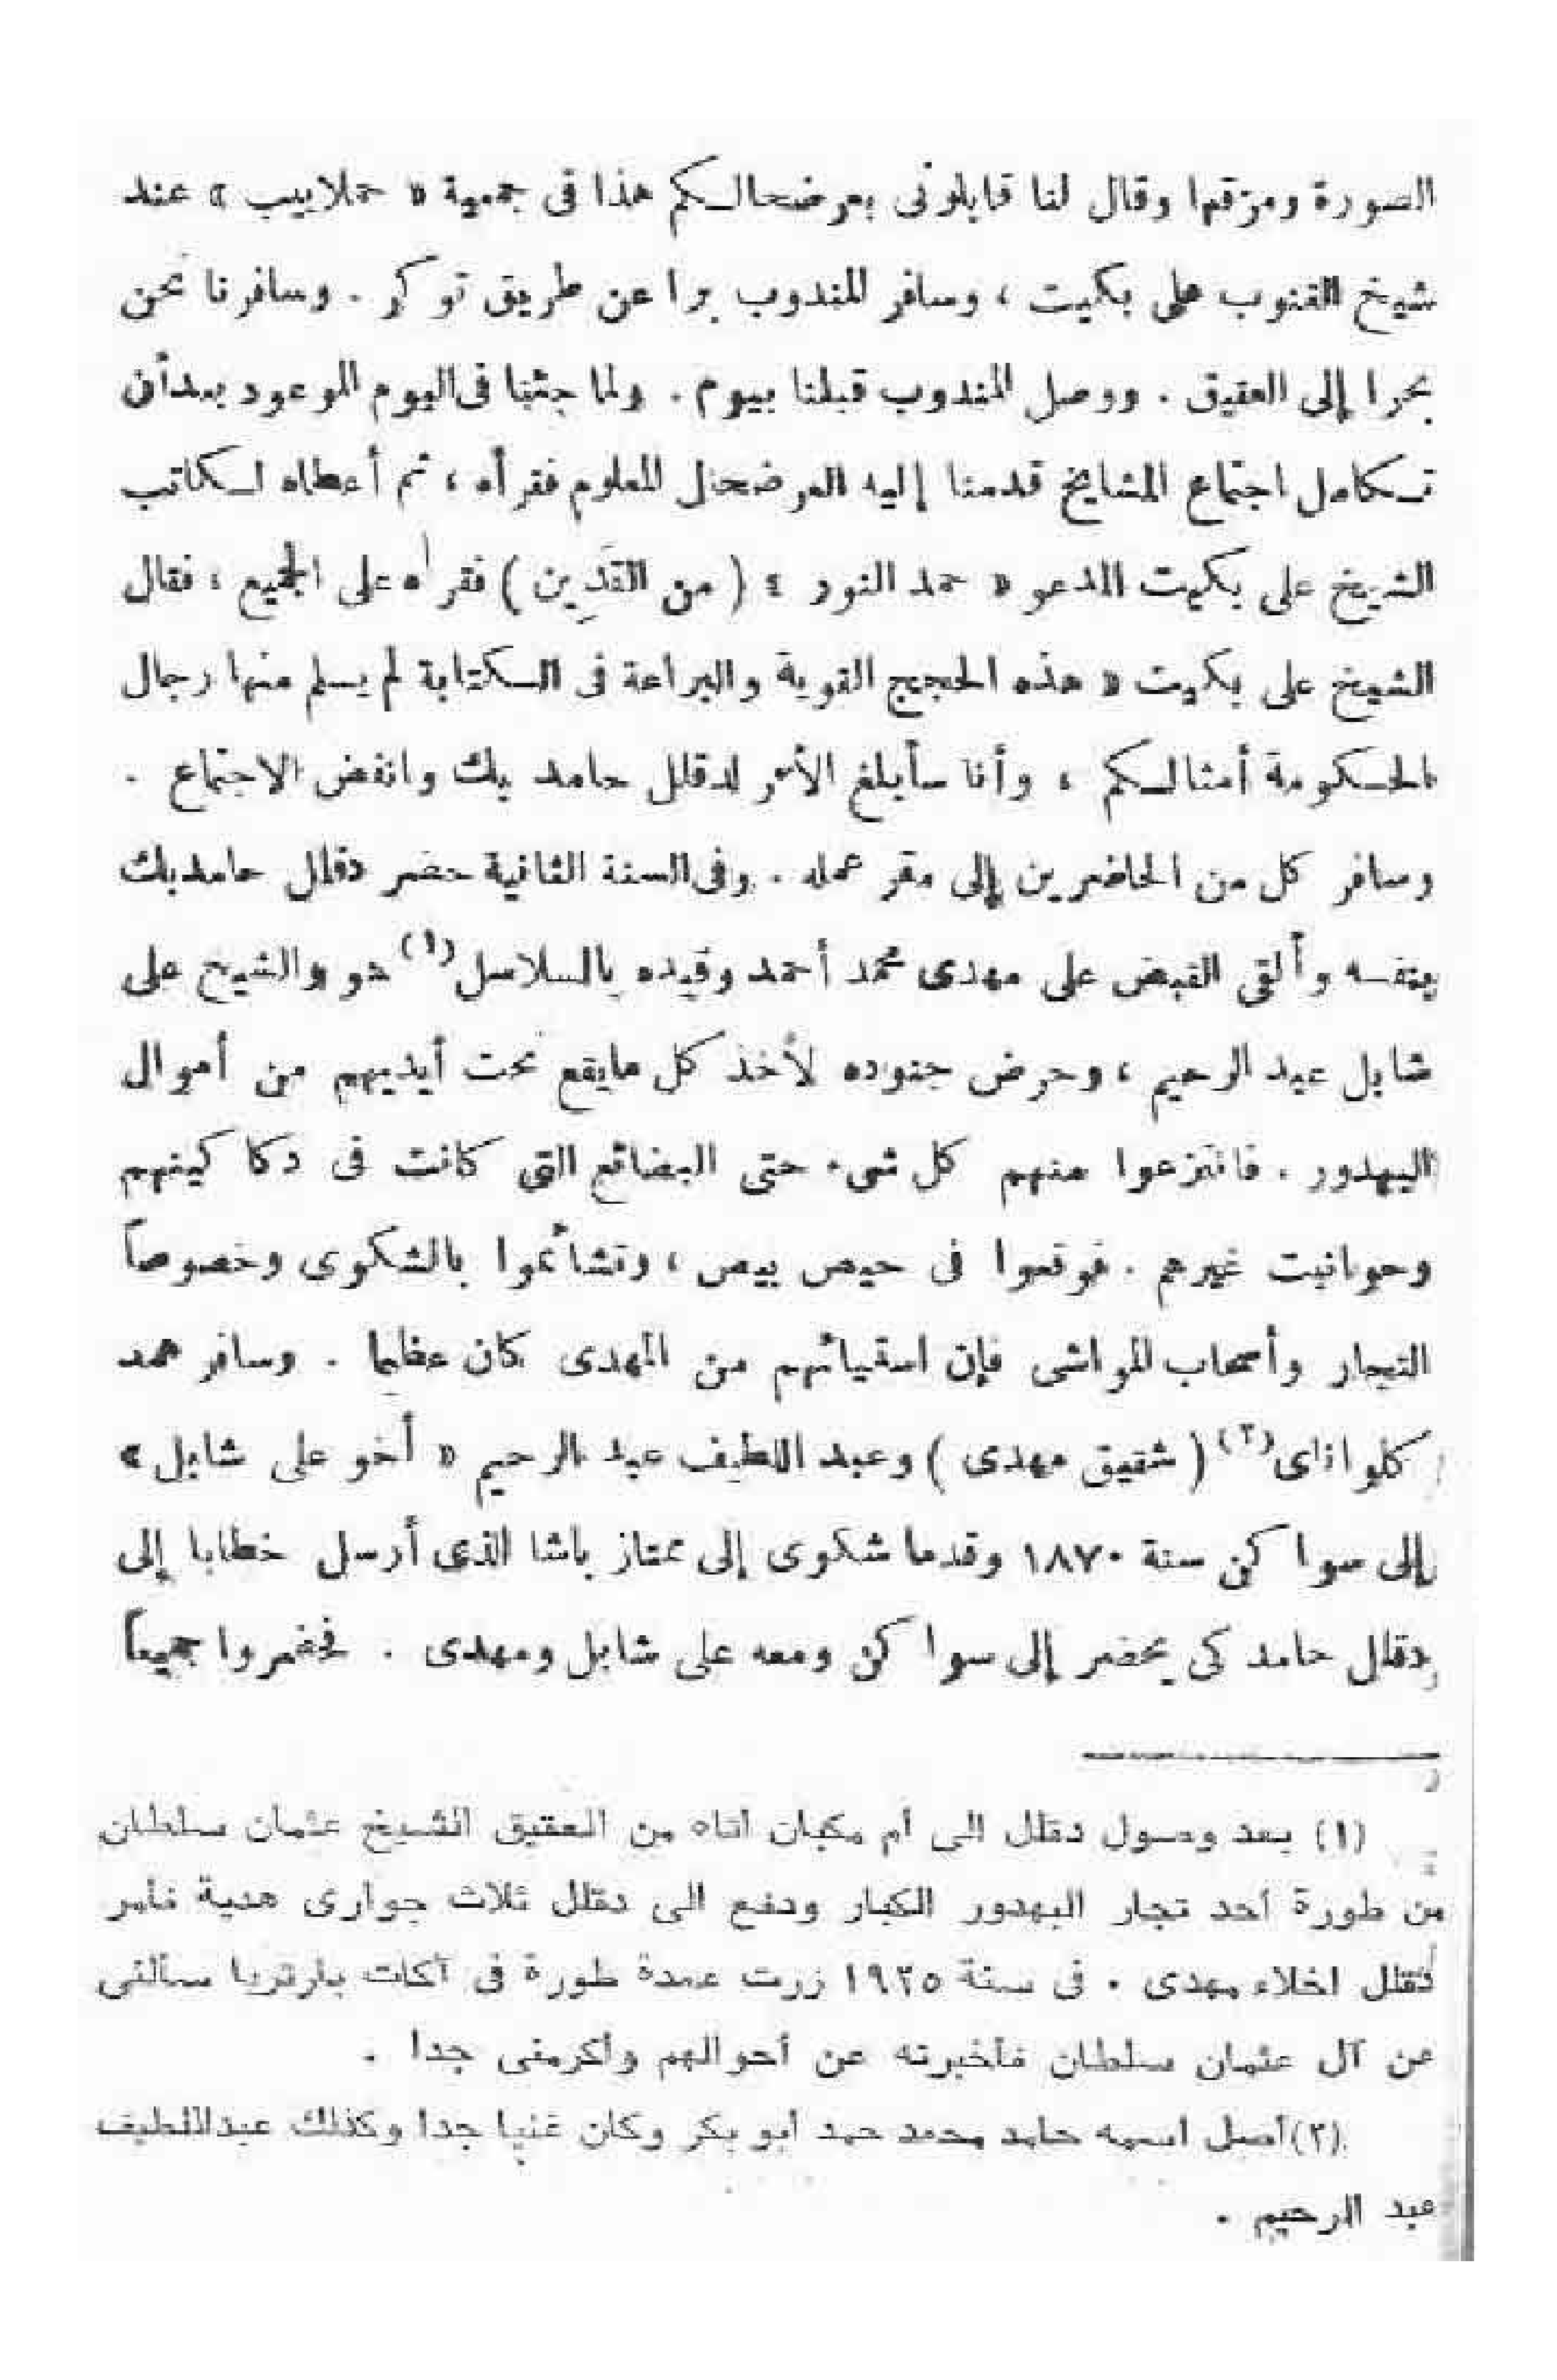 الصورة ومزقها وقال لنا قابلونى بعرضحالكم هذا فى جمعية « حملاييب » عند
شيخ القنوب على بكيت ، وسافر المندوب برا عن طريق توكر . وسافرنا نحن
بحرا إلى العقيق . ووصل المندوب قبلنا بيوم . ولما جئنا فى اليوم الموعود بعد أن
تكامل اجتماع المشايخ قدمنا إليه العرضحال المعلوم فقرأه ، ثم أعطاه لكاتب
الشيخ على بكيت المدعو « حمد النور » ( من القَدِين ) فقرأه على الجميع ، فقال
الشيخ على بكيت « هذه الحجج القوية والبراعة فى الكتابة لم يسلم منها رجال
الحكومة أمثالكم ، وأنا سأبلغ الأمر لدقلل حامد بك وانفض الاجتماع .
وسافر كل من الحاضرين إلى مقر عمله . وفى السنة الثانية حضر دقلل حامد بك
بنفسه وألقى القبض على مهدى محمد أحمد وقيده بالسلاسل (١) هو والشيخ على
شابل عبد الرحيم ، وحرض جنوده لأخذ كل مايقع تحت أيديهم من أموال
البهدور . فانتزعوا منهم كل شىء حتى البضائع التى كانت فى دكاكينهم
وحوانيت غيرهم . فوقعوا فى حيص بيص ، وتشاءموا بالشكوى وخصوصاً
التجار وأصحاب المواشى فإن استيائهم من المهدى كان عظيما . وسافر حمد
كلواناى (٢) ( شقيق مهدى ) وعبد اللطيف عبد الرحيم « أخو على شابل »
إلى سواكن سنة ١٨٧٠ وقدما شكوى إلى ممتاز باشا الذى أرسل خطابا إلى
دقلل حامد كى يحضر إلى سواكن ومعه على شابل ومهدى . فحضروا جميعاً
(١) بعد وصول دقلل الى أم مكبان اتاه من العقيق الشيخ عثمان سلطان
من طورة أحد تجار البهدور الكبار ودفع الى دقلل ثلاث جوارى هدية فأمر
دقلل اخلاء مهدى . فى سنة ١٩٢٥ زرت عمدة طورة فى آكات بارتريا سألنى
عن آل عثمان سلطان فأخبرته عن أحوالهم وأكرمنى جدا .
(٢) أصل اسمه حامد محمد حمد أبو بكر وكان غنيا جدا وكذلك عبداللطيف
عبد الرحيم .